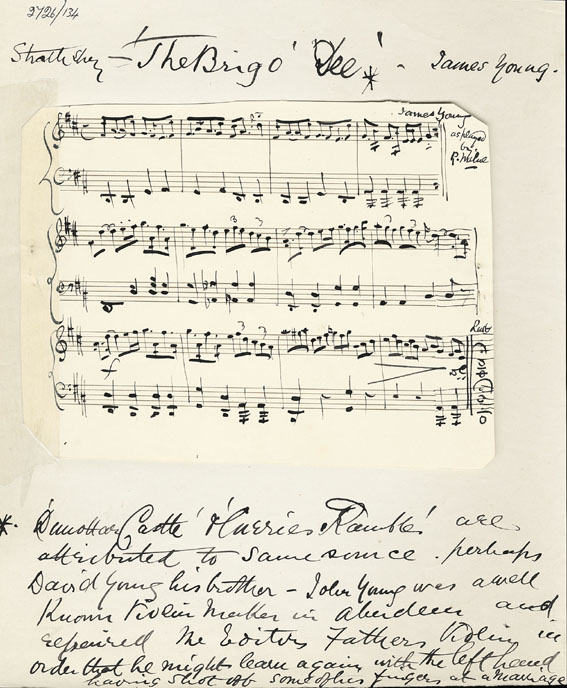 2726/134
Strathspey - 'The Brig o' Dee' * - James Young.
James Young
as played
by
P. Milne
3 3
3 3
*. 'Dunottar Castle' & 'Hurries Ramble' are
attributed to same source. perhaps
David Young his brother - John Young was a well
Known Violin Maker in Aberdeen and
repaired the Editors Fathers Violin in
order that he might learn again with the left hand
having shot off some of his fingers at a marriage